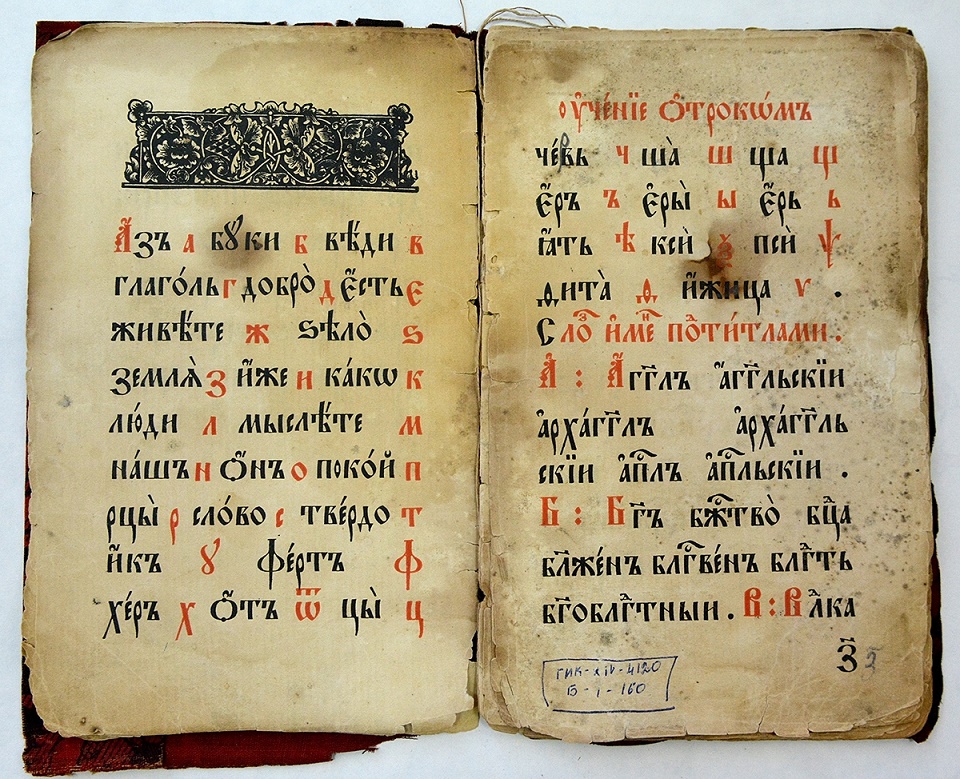 А҆́зъ а бꙋ́ки б вѣ́ди в
глаго́ль г добро̀ д є҆́сть є
живѣ́те ж ѕѣлѡ̀ ѕ
землѧ̀ з и҆́же и ка́кѡ к
лю́ди л мыслѣ́те м
на́шъ н ѻ҆́нъ о поко́й п
рцы̀ р сло́во с тве́рдо т
и҆́къ ꙋ фе́ртъ ф
хе́ръ х ѻ҆́тъ ѿ цы̀ ц
оу҆че́нїе ѻ҆трокѡ́мъ
че́вь ч ша̀ ш ща щ
є҆́ръ ъ є҆ры̀ ы є҆́рь ь
ꙗ҆́ть ѣ кси́ ѯ пси́ ѱ
ѳита̀ ѳ и҆́жица ѵ .
Сло҇ и҆мє҇ под̾ ти́тлами.
А҆́ : А҆́гг҃лъ а҆́гг҃льскїи
а҆рха́гг҃лъ а҆рха́гг҃ль
скїи а҆п҇лъ а҆п҇льскїи .
Б : Бг҃ъ бж҇тво̀ бц҃а
бл҃же́нъ блг҇ве́нъ блгⷣть
бг҃облгⷣтныи. В : Влⷣка
з҃
5
ГИК-XIV-4120
Б-1-160